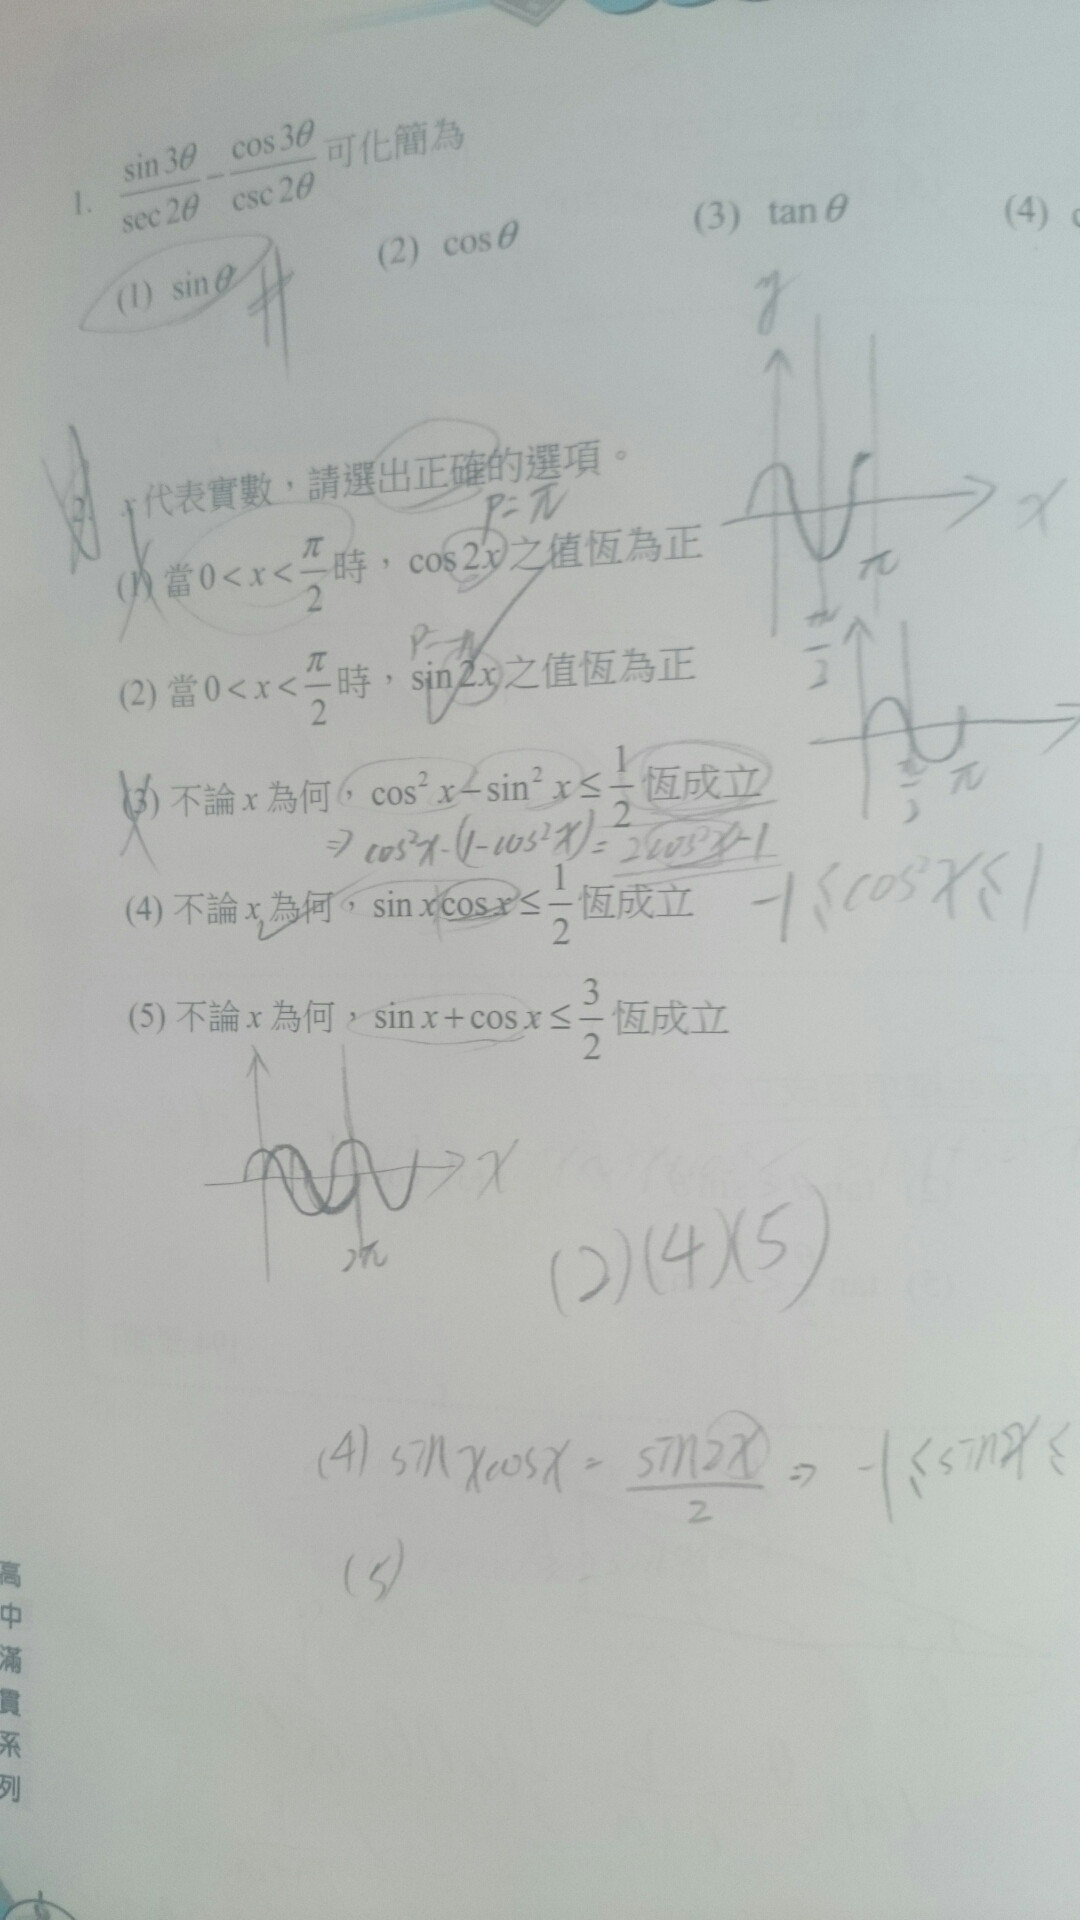 1. sin3θ/sec2θ − cos3θ/csc2θ 可化簡為
(1) sinθ (2) cosθ (3) tanθ (4)
y
x
π
π/2
2. x代表實數，請選出正確的選項。
P=π
(1) 當0<x<π/2時，cos2x之值恆為正
P=π
(2) 當0<x<π/2時，sin2x之值恆為正
π/2 π
(3) 不論x為何，cos²x−sin²x≤1/2 恆成立
⇒ cos²x-(1-cos²x)=2cos²x-1
-1≤cos²x≤1
(4) 不論x為何，sinxcosx≤1/2 恆成立
(5) 不論x為何，sinx+cosx≤3/2 恆成立
x
2π
(2)(4)(5)
(4) sinxcosx = sin2x/2 ⇒ -1≤sin2x≤
(5)
高中滿貫系列